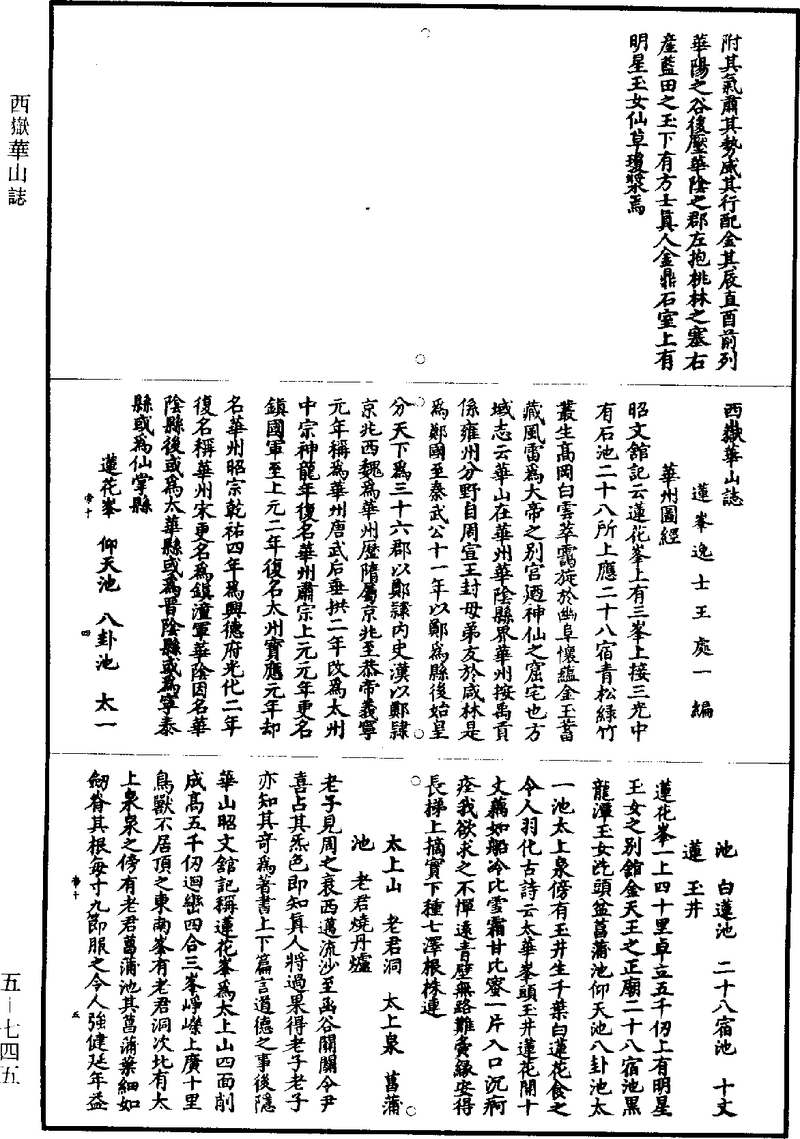 西嶽華山誌
附其氣肅其勢威其行配金其辰直酉前列
華陽之谷後壓華陰之郡左抱桃林之塞右
產藍田之玉下有方士真人金鼎石室上有
明星玉女仙草瓊漿焉
西嶽華山誌
蓮峯逸士王處一編
華州圖經
昭文館記云蓮花峯上有三峯上接三光中
有石池二十八所上應二十八宿青松綠竹
叢生高岡白雲萃靄旋於幽阜懷蘊金玉蓄
藏風雷為大帝之別宮迺神仙之窟宅也方
域志云華山在華州華陰縣界華州按禹貢
係雍州分野自周宣王封母弟友於咸林是
為鄭國至秦武公十一年以鄭為縣後始皇
分天下為三十六郡以鄭隸內史漢以鄭隸
京兆西魏為華州歷隋屬京兆至恭帝義寧
元年稱為華州唐武后垂拱二年改為太州
中宗神龍年復名華州肅宗上元元年更名
鎮國軍至上元二年復名太州寶應元年却
名華州昭宗乾祐四年為興德府光化二年
復名稱華州宋更名為鎮潼軍華陰因名華
陰縣後或為太華縣或為晉陰縣或為寧泰
縣或為仙掌縣
蓮花峯 仰天池 八卦池 太一
帝十 四
池 白蓮池 二十八宿池 十丈
蓮 玉井
蓮花峯一上四十里卓立五千仞上有明星
玉女之別館金天王之正廟二十八宿池黑
龍潭玉女洗頭盆菖蒲池仰天池八卦池太
一池太上泉傍有玉井生千葉白蓮花食之
令人羽化古詩云太華峯頭玉井蓮花開十
丈藕如船冷比雪霜甘比蜜一片入口沉痾
痊我欲求之不憚遠青壁無路難夤緣安得
長梯上摘實下種七澤根株連
太上山 老君洞 太上泉 菖蒲
池 老君燒丹爐
老子見周之衰西邁流沙至函谷關關令尹
喜占其炁色即知真人將過果得老子老子
亦知其奇為著書上下篇言道德之事後隱
華山昭文館記稱蓮花峯為太上山四面削
成高五千仞迴巒四合三峯崢嶸上廣十里
鳥獸不居頂之東南峯有老君洞次北有太
上泉泉之傍有老君菖蒲池其菖蒲葉細如
劒脊其根每寸九節服之令人強健延年益
帝十 五
五－七四五